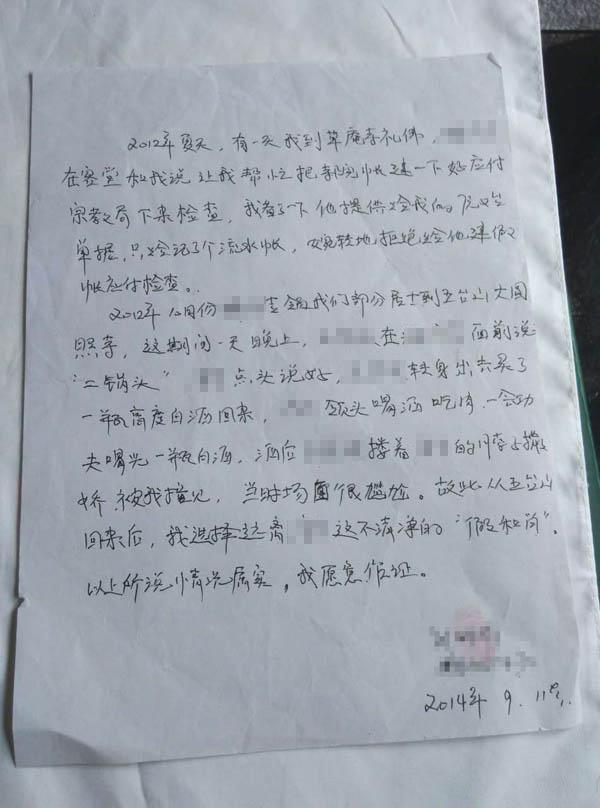 2012年夏天，有一天我到草庵寺礼佛，
在客堂和我说让我帮忙把帐建一下好应付
宗教局下来检查，我看了一下他提供给我的
单据，只给记了个流水帐，婉转地拒绝给他建假
帐应付检查。
2012年 月份 我们部分居士到五台山大圆
照寺，这期间一天晚上， 在 面前说
“二锅头” 点头说好， 转身出去买了
一瓶高度白酒回来， 领头喝酒吃肉，一会功
夫喝光一瓶白酒，酒后 搂着 的脖子撒
娇被我撞见，当时场面很尴尬。故此从五台山
回来后，我选择远离 这不清净的“假和尚”。
以上所说情况属实，我愿意作证。
2014年 9. 11号.